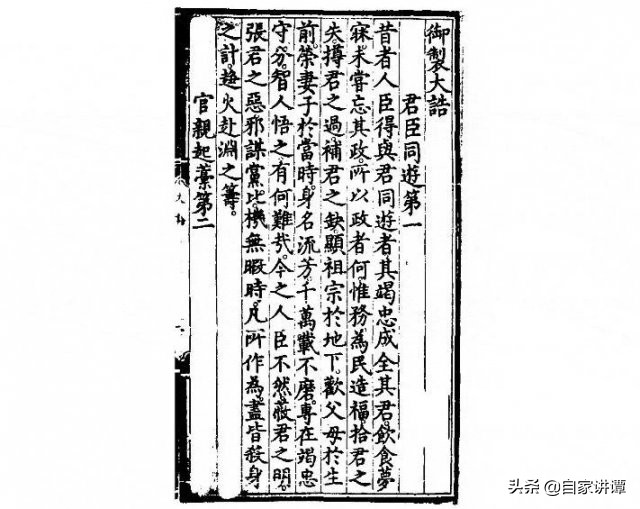 御製大誥
君臣同遊第一
昔者人臣得與君同遊者其竭忠成全其君。飲食夢
寐未嘗忘其政。所以政者何。惟務為民造福拾君之
失。撙君之過。補君之缺。顯祖宗於地下。歡父母於生
前。榮妻子於當時。身名流芳。千萬載不磨。專在竭忠
守分。智人悟之。有何難哉。今之人臣不然。蔽君之明。
張君之惡。邪謀黨比。機無暇時。凡所作為。盡皆殺身
之計。趨火赴淵之籌。
官親起藁第二
头条 @自家讲谭